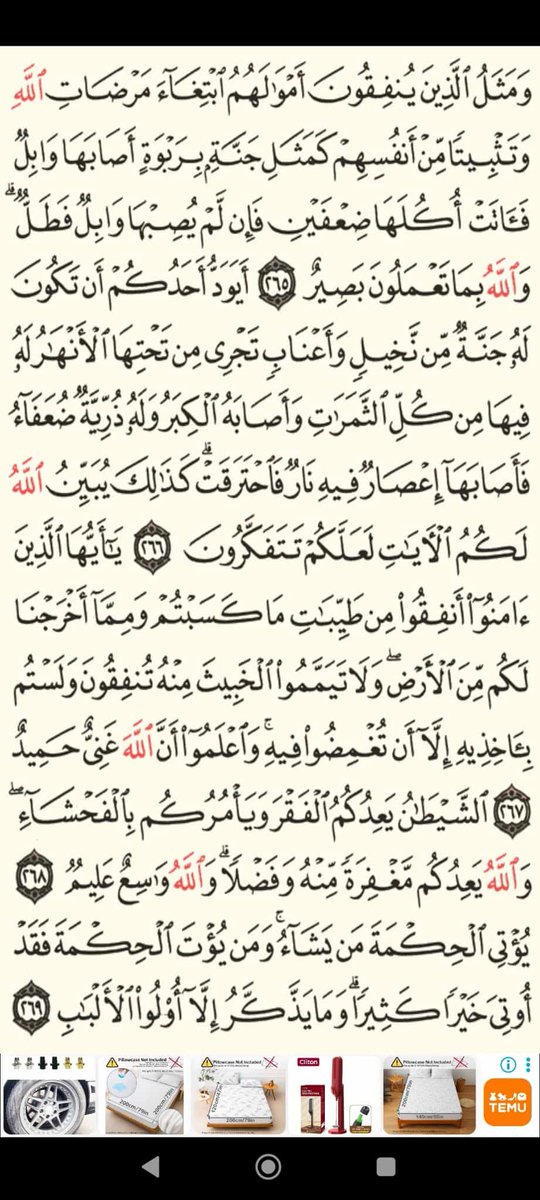 وَمَثَلُ ٱلَّذِينَ يُنفِقُونَ أَمۡوَٰلَهُمُ ٱبۡتِغَآءَ مَرۡضَاتِ ٱللَّهِ
وَتَثۡبِيتٗا مِّنۡ أَنفُسِهِمۡ كَمَثَلِ جَنَّةِۭ بِرَبۡوَةٍ أَصَابَهَا وَابِلٞ
فَـَٔاتَتۡ أُكُلَهَا ضِعۡفَيۡنِ فَإِن لَّمۡ يُصِبۡهَا وَابِلٞ فَطَلّٞۗ
وَٱللَّهُ بِمَا تَعۡمَلُونَ بَصِيرٌ ٢٦٥ أَيَوَدُّ أَحَدُكُمۡ أَن تَكُونَ
لَهُۥ جَنَّةٞ مِّن نَّخِيلٖ وَأَعۡنَابٖ تَجۡرِي مِن تَحۡتِهَا ٱلۡأَنۡهَٰرُ لَهُۥ
فِيهَا مِن كُلِّ ٱلثَّمَرَٰتِ وَأَصَابَهُ ٱلۡكِبَرُ وَلَهُۥ ذُرِّيَّةٞ ضُعَفَآءُ
فَأَصَابَهَآ إِعۡصَارٞ فِيهِ نَارٞ فَٱحۡتَرَقَتۡۗ كَذَٰلِكَ يُبَيِّنُ ٱللَّهُ
لَكُمُ ٱلۡأٓيَٰتِ لَعَلَّكُمۡ تَتَفَكَّرُونَ ٢٦٦ يَٰٓأَيُّهَا ٱلَّذِينَ
ءَامَنُوٓاْ أَنفِقُواْ مِن طَيِّبَٰتِ مَا كَسَبۡتُمۡ وَمِمَّآ أَخۡرَجۡنَا
لَكُم مِّنَ ٱلۡأَرۡضِۖ وَلَا تَيَمَّمُواْ ٱلۡخَبِيثَ مِنۡهُ تُنفِقُونَ وَلَسۡتُم
بِـَٔاخِذِيهِ إِلَّآ أَن تُغۡمِضُواْ فِيهِۚ وَٱعۡلَمُوٓاْ أَنَّ ٱللَّهَ غَنِيٌّ حَمِيدٌ
٢٦٧ ٱلشَّيۡطَٰنُ يَعِدُكُمُ ٱلۡفَقۡرَ وَيَأۡمُرُكُم بِٱلۡفَحۡشَآءِۖ
وَٱللَّهُ يَعِدُكُم مَّغۡفِرَةٗ مِّنۡهُ وَفَضۡلٗاۗ وَٱللَّهُ وَٰسِعٌ عَلِيمٞ ٢٦٨
يُؤۡتِي ٱلۡحِكۡمَةَ مَن يَشَآءُۚ وَمَن يُؤۡتَ ٱلۡحِكۡمَةَ فَقَدۡ
أُوتِيَ خَيۡرٗا كَثِيرٗاۗ وَمَا يَذَّكَّرُ إِلَّآ أُوْلُواْ ٱلۡأَلۡبَٰبِ ٢٦٩
Pillowcase Not Included
Pillowcase Not Included
Cliton
Pillowcase Not Included
200cm/79in
200cm/79in
TEMU